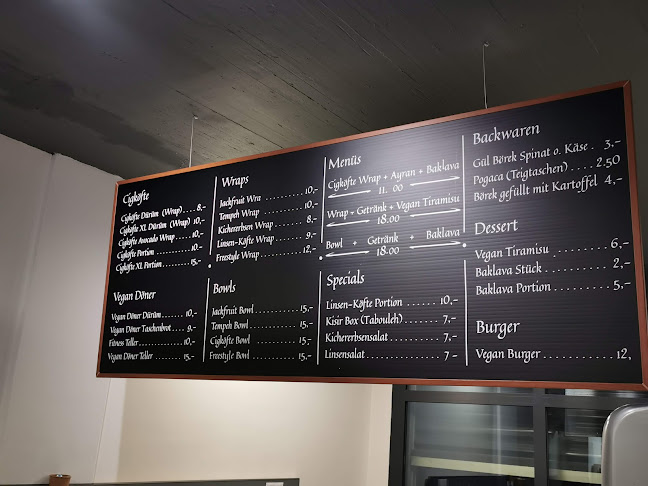 Çiğköfte
Çiğköfte Dürüm (Wrap).... 8,-
Çiğköfte XL Dürüm (Wrap) 10,-
Çiğköfte Avocado Wrap .... 10,-
Çiğköfte Portion .......... 10,-
Çiğköfte XL Portion........ 15,-
Vegan Döner
Vegan Döner Dürüm......... 10,-
Vegan Döner Taschenbrot... 9,-
Fitness Teller............. 10,-
Vegan Döner Teller ......... 15,-
Wraps
Jackfruit Wra .......... 10,-
Tempeh Wrap .......... 10,-
Kichererbsen Wrap ...... 8,-
Linsen-Köfte Wrap ...... 9,-
Freestyle Wrap .......... 12,-
Bowls
Jackfruit Bowl .......... 15,-
Tempeh Bowl .......... 15,-
Çiğköfte Bowl .......... 15,-
Freestyle Bowl .......... 15,-
Menüs
Çiğköfte Wrap + Ayran + Baklava
11. 00
Wrap + Getränk + Vegan Tiramisu
18.00
Bowl + Getränk + Baklava
18.00
Specials
Linsen-Köfte Portion ....... 10,-
Kisir Box (Tabouleh)........ 7,-
Kichererbsensalat .......... 7 -
Linsensalat ............... 7 -
Backwaren
Gül Börek Spinat o. Käse . 3,-
Pogaca (Teigtaschen) .... 2.50
Börek gefüllt mit Kartoffel 4,-
Dessert
Vegan Tiramisu ......... 6,-
Baklava Stück .......... 2,-
Baklava Portion ......... 5,-
Burger
Vegan Burger ............ 12,